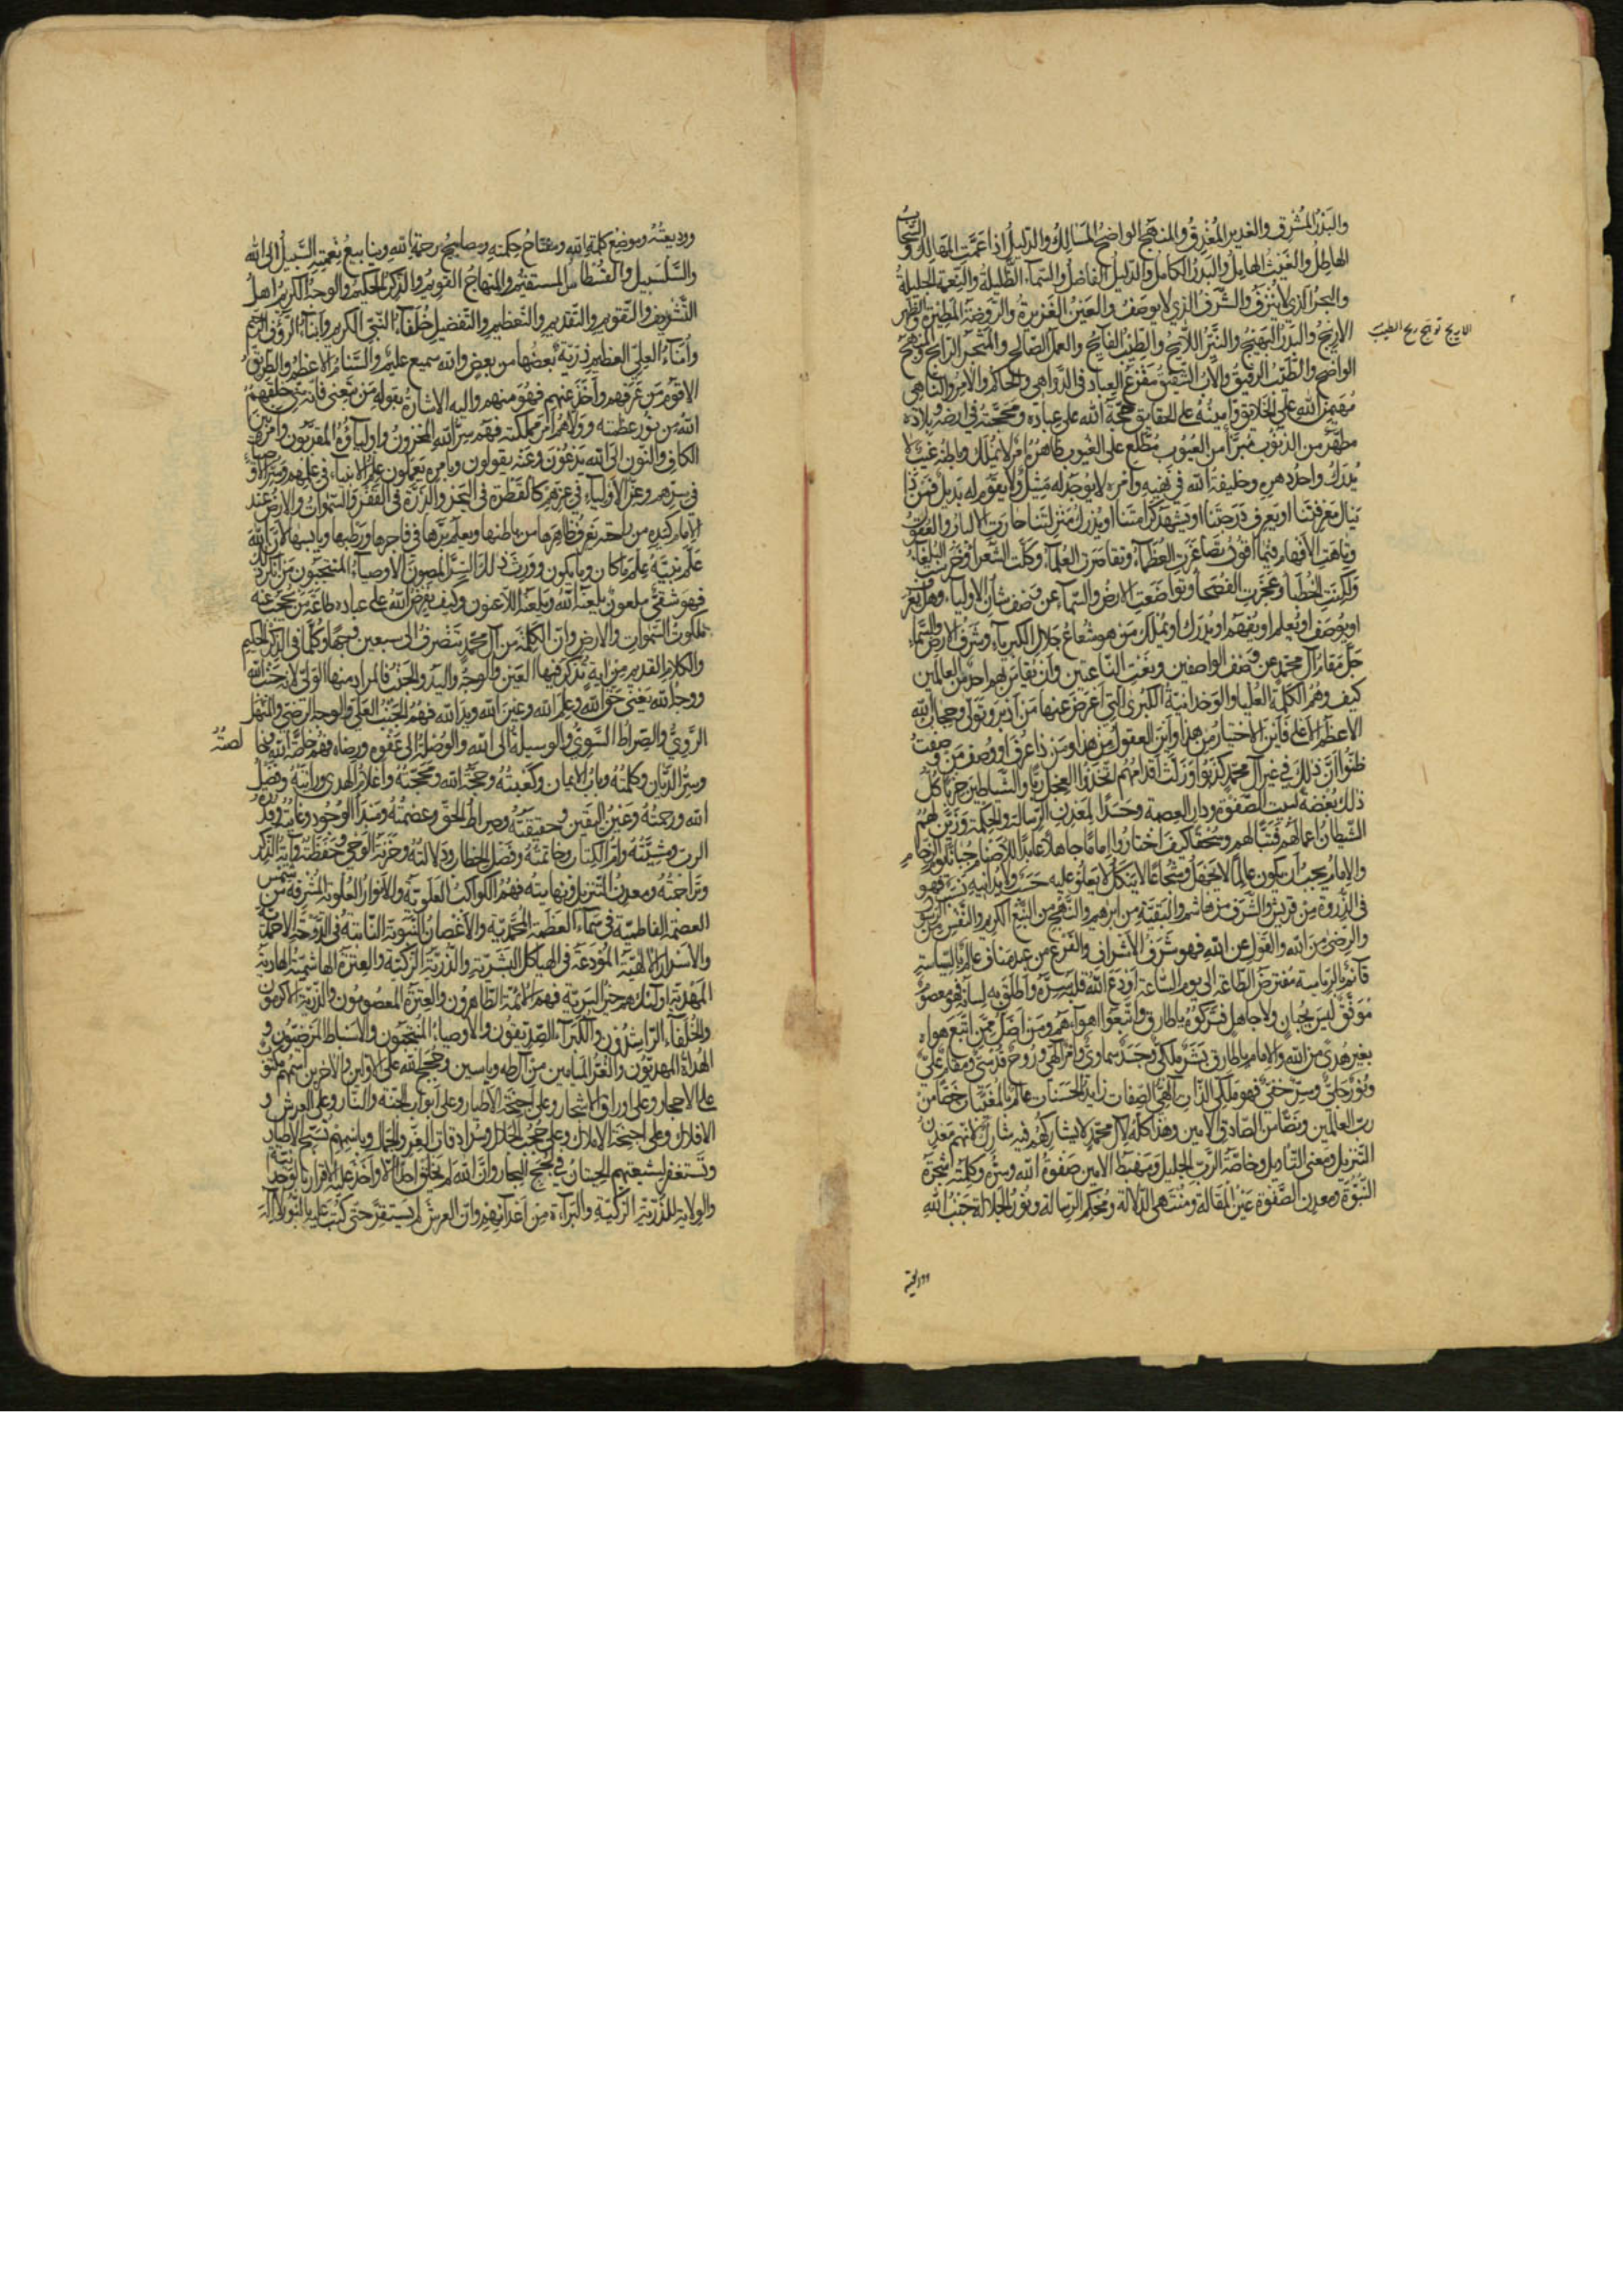 والبَدْرُ المُشرِق والغدير المُغدِق والمنهج الواضح المسالك والدليل اذا عمّت المهالك والسحاب
الهاطل والغيث الهامل والبدر الكامل والدليل الفاضل والسماء الظليلة والنعمة الجليلة
والبحر الذي لا يُنزف والشرف الذي لا يوصف والعين الغزيرة والروضة المطيرة والزهر
الاريج والبدر البهيج والنيّر اللايح والطيب الفايح والعمل الصالح والمتجر الرابح والمنهج
الاريج توهّج ريح الطيب
الواضح والطبيب الرفيق والاب الشفيق مفزع العباد في الدواهي والحاكم والآمر والناهي
مُهيمن الله على الخلايق وأمينه على الحقايق حجّة الله على عباده ومحجّته في ارضه وبلاده
مطهّر من الذنوب مبرّأ من العيوب مطّلع على الغيوب ظاهره أمر لا يُملك وباطنه غيب لا
يُدرك واحد دهره وخليفة الله في نهيه وأمره لا يوجد له مثيل ولا يقوم له بديل فمن ذا
ينال معرفتنا او يعرف درجتنا او يشهد كرامتنا او يدرك منزلتنا حارت الالباب والعقول
وتاهت الأفهام فيما اقول تصاغرت العظماء وتقاصرت العلماء وكلّت الشعراء وخرست البلغاء
ولكنت الخطباء وعجزت الفصحاء وتواضعت الارض والسماء عن وصف شأن الاولياء وهل يُعرف
او يوصف او يُعلم او يُفهم او يُدرك او يُملك من هو شعاع جلال الكبرياء وشرف الارض والسماء
جلّ مقام آل محمّد عن وصف الواصفين ونعت الناعتين وأن يقاس بهم احد من العالمين
كيف وهم الكلمة العليا والوحدانية الكبرى التي أعرض عنها من أدبر وتولّى وحجاب الله
الاعظم الاعلى فأين الاختيار من هذا وأين العقول من هذا ومن ذا عرف او وصف من وصفت
ظنّوا انّ ذلك في غير آل محمّد كذبوا وزلّت اقدامهم اتّخذوا العجل ربّا والشياطين حزبا كلّ
ذلك بغضة لبيت الصفوة ودار العصمة وحسدا لمعدن الرسالة والحكمة وزيّن لهم
الشيطان اعمالهم فتبّا لهم وسحقا كيف اختاروا إماما جاهلا عابدا للاصنام جبانا يوم الزحام
والإمام يجب ان يكون عالما لا يجهل وشجاعا لا ينكل لا يعلو عليه حسب ولا يدانيه نسب فهو
في الذروة من قريش والشرف من هاشم والبقيّة من ابرهيم والنهج من النبع الكريم والنفس من الرسول
والرضى من الله والقول عن الله فهو شرف الأشراف والفرع من عبد مناف عالم بالسياسة
قائم بالرياسة مفترض الطاعة الى يوم الساعة أودع الله قلبه سرّه وأطلق به لسانه فهو معصوم
موفّق ليس بجبان ولا جاهل فتركوه يا طارق واتّبعوا اهوآءهم ومن اضلّ ممّن اتّبع هواه
بغير هدى من الله والإمام يا طارق بشر ملكيّ وجسد سماويّ وأمر آلهيّ وروح قدسيّ ومقام عليّ
ونور جليّ وسرّ خفيّ فهو ملكيّ الذات آلهيّ الصفات زايد الحسنات عالم بالمغيّبات خصّا من
ربّ العالمين ونصّا من الصادق الامين وهذا كلّه لآل محمّد لا يشاركهم فيه مشارك لانّهم معدن
التنزيل ومعنى التاويل وخاصّة الربّ الجليل ومهبط الامين صفوة الله وسرّه وكلمته شجرة
النبوّة ومعدن الصفوة عين المقالة ومنتهى الدلالة ومحكم الرسالة ونور الجلالة جنب الله
ووديعته
ووديعته وموضع كلمة الله ومفتاح حكمته ومصابيح رحمة الله وينابيع نعمته السبيل الى الله
والسلسبيل والقسطاس المستقيم والمنهاج القويم والذكر الحكيم والوجه الكريم اهل
التشريف والتقويم والتقديم والتعظيم والتفضيل خلفآء النبيّ الكريم وأبنآء الرؤف الرحيم
وأمنآء العليّ العظيم ذريّة بعضها من بعض والله سميع عليم والسنام الاعظم والطريق
الاقوم من عرفهم وأخذ عنهم فهو منهم واليه الاشارة بقوله من تبعني فانّه منّي خلقهم
الله من نور عظمته وولّاهم أمر مملكته فهم سرّ الله المخزون واولياؤه المقرّبون وأمره بين
الكاف والنون الى الله يدعون وعنه يقولون وبامره يعملون علم الانبياء في علمهم وسرّ الاوصياء
في سرّهم وعزّ الأولياء في عزّهم كالقطرة في البحر والذرّة في القفر والسموات والارض عند
الإمام كيده من راحته يعرف ظاهرها من باطنها ويعلم برّها من فاجرها ورطبها ويابسها لانّ الله
علّم نبيّه علم ما كان وما يكون وورث ذلك السرّ المصون الاوصياء المنتجبون من أنكر ذلك
فهو شقيّ ملعون يلعنه الله ويلعنه اللاعنون وكيف يفرض الله على عباده طاعة من يحجب عنه
ملكوت السموات والارض وانّ الكلمة من آل محمّد تنصرف الى سبعين وجها وكلّما في الذكر الحكيم
والكلام القديم من آية تذكر فيها العين والوجه واليد والجنب فالمراد منها الوليّ لانّه جنب الله
ووجه الله يعني حقّ الله وعلم الله وعين الله ويد الله فهم الجنب العليّ والوجه الرضيّ والمنهل
الرويّ والصراط السويّ والوسيلة الى الله والوصلة الى عفوه ورضاه فهم خاصّة الله وخا
لصته
وسرّ الديّان وكلمته وباب الايمان وكعبته وحجّة الله ومحجّته وأعلام الهدى ورايته وفضل
الله ورحمته وعين اليقين وحقيقته وصراط الحقّ وعصمته ومبدأ الوجود وغايته وقدرة
الربّ ومشيّته وامّ الكتاب وخاتمته وفصل الخطاب ودلالته وخزنة الوحي وحفظته وآية الذكر
وتراجمته ومعدن التنزيل ونهايته فهم الكواكب العلويّة والأنوار العلويّة المشرقة من شمس
العصمة الفاطميّة في سمآء العظمة المحمّديّة والأغصان النبويّة النابتة في الدوحة الاحمديّة
والاسرار الالهيّة المودعة في الهياكل البشريّة والذريّة الزكيّة والعترة الهاشميّة الهادية
المهديّة اولئك هم خير البريّة فهم الائمّة الطاهرون والعترة المعصومون والذريّة الاكرمون
والخلفآء الراشدون والكبرآء الصدّيقون والأوصياء المنتجبون والاسباط المرضيّون و
الهداة المهديّون والغرّ الميامين من آل طه وياسين وحجج الله على الاوّلين والاخرين اسمهم مكتوب
على الاحجار وعلى اوراق الاشجار وعلى أجنحة الأطيار وعلى أبواب الجنّة والنار وعلى العرش و
الافلاك وعلى اجنحة الاملاك وعلى حجب الجلال وسرادقات العزّ والجمال وباسمهم تسبّح الاطيار
وتستغفر لشيعتهم الحيتان في لجج البحار وانّ الله لم يخلق احدا الّا وأخذ عليه الاقرار بالوحدانيّة
والولاية للذريّة الزكيّة والبرآءة من أعدآئهم وانّ العرش لم يستقرّ حتّى كتب عليه بالنور لا اله